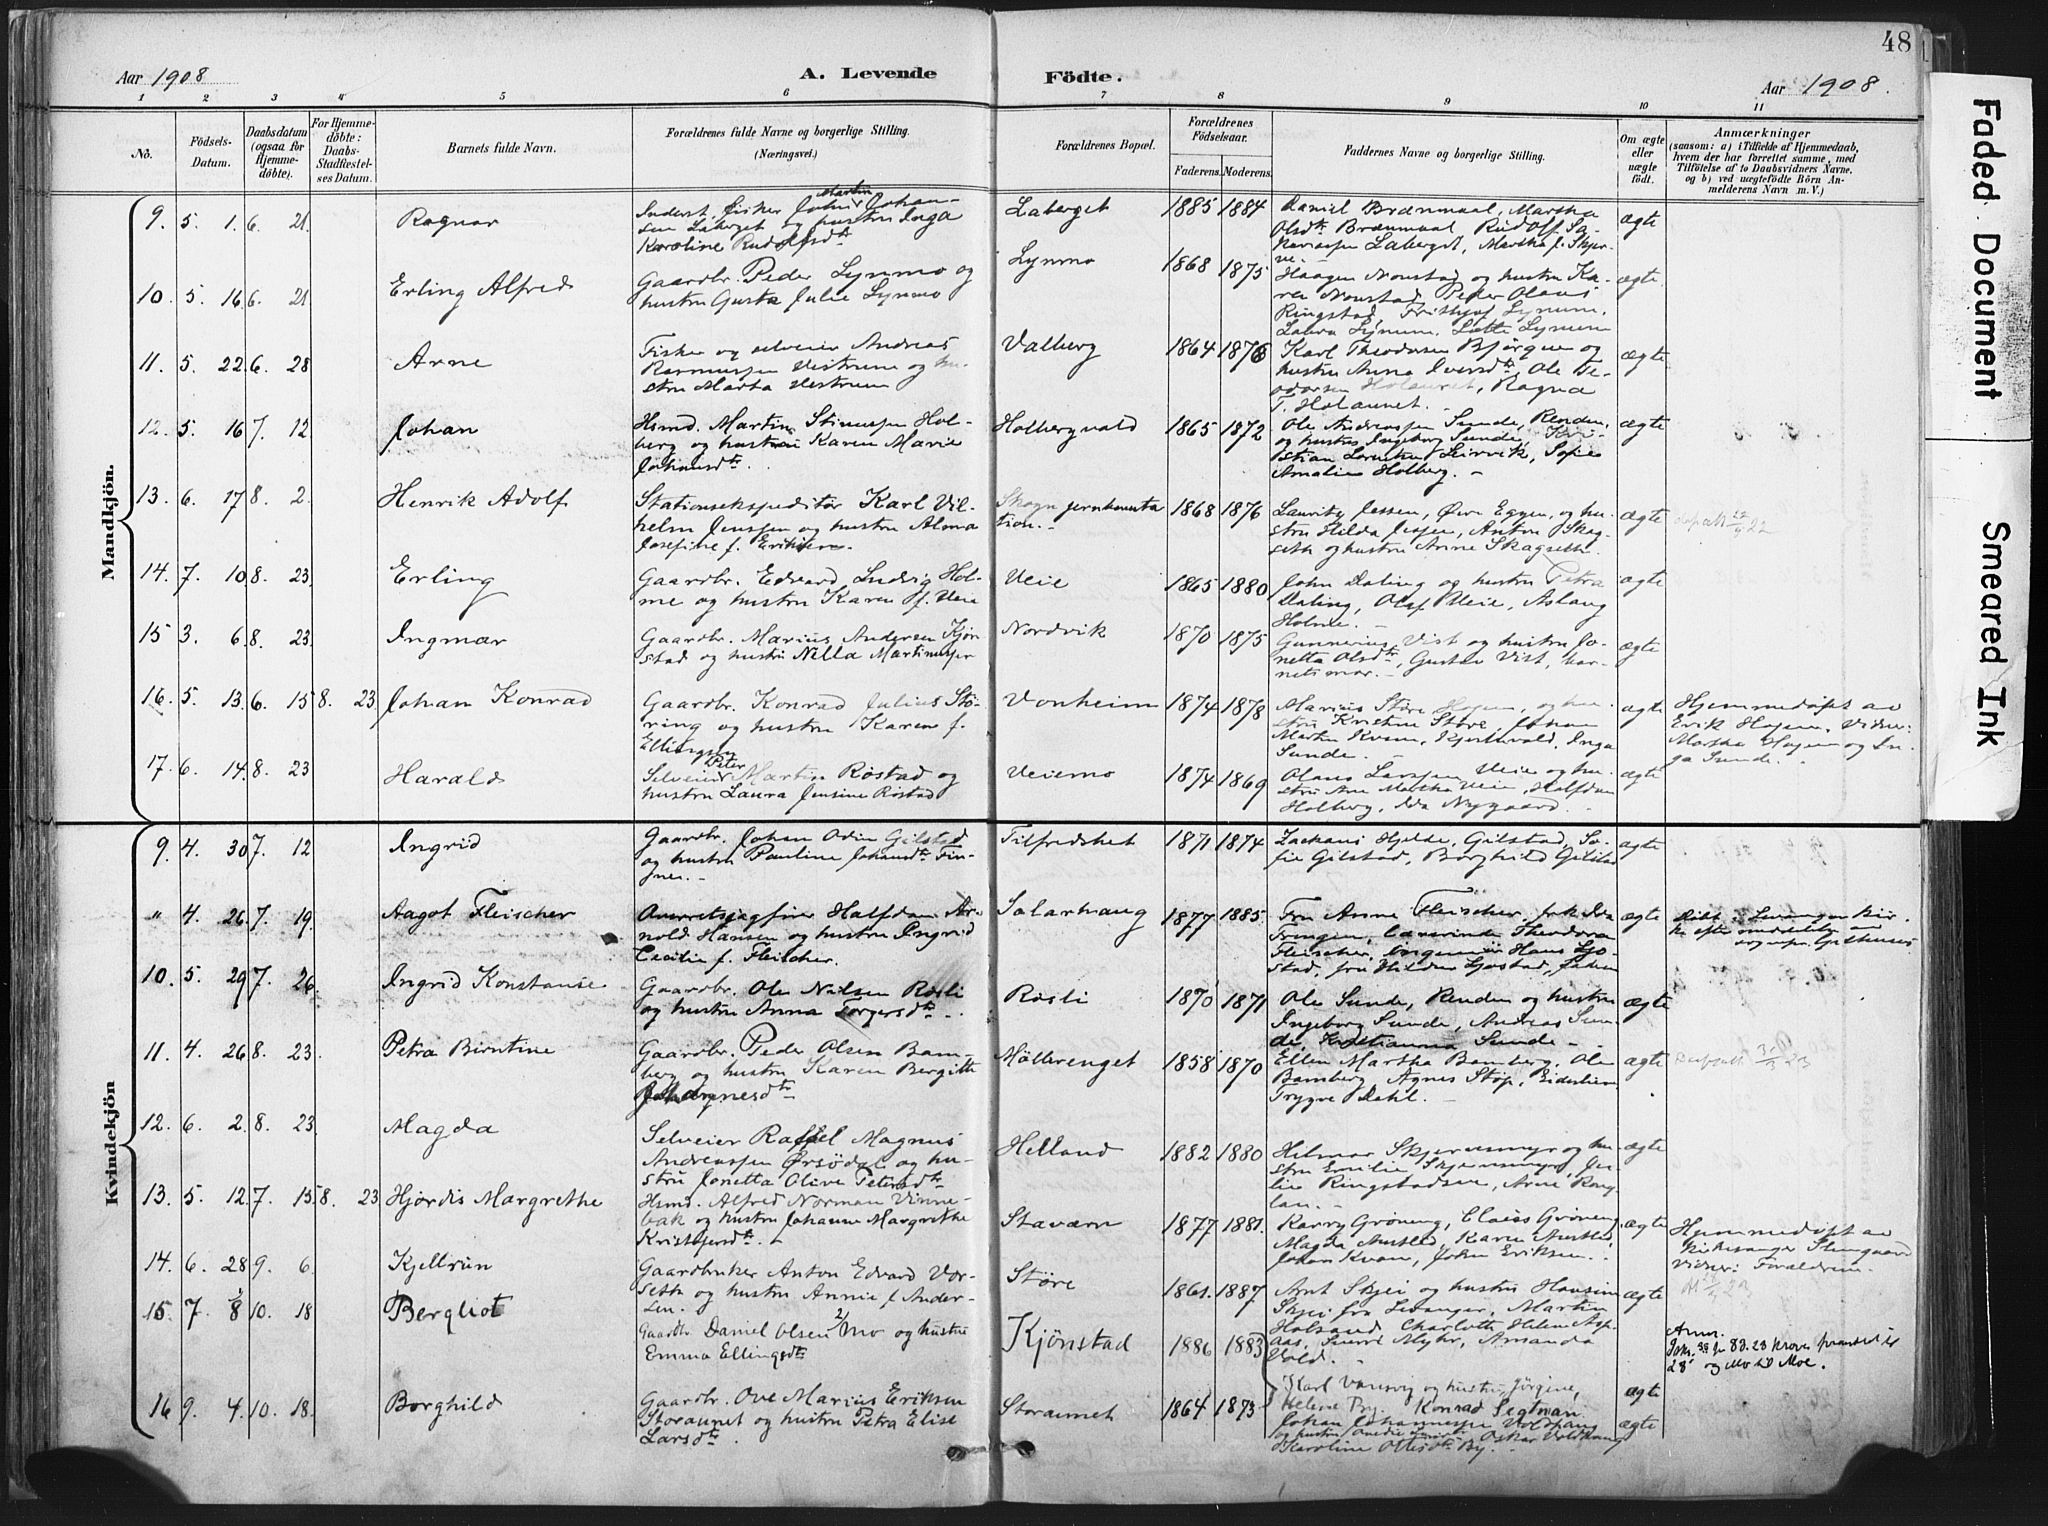 48
Aar 1908
A. Levende
Födte.
Aar 1908.
1 2 3 4 5 6 7 8 9 10 11
No.
Födsels-
Datum.
Daabsdatum
(ogsaa for
Hjemme-
döbte).
For Hjemme-
döbte:
Daabs-
Stadfæstel-
ses Datum.
Barnets fulde Navn.
Forældrenes fulde Navne og borgerlige Stilling.
(Næringsvei.)
Forældrenes Bopæl.
Forældrenes
Födselsaar.
Faderens. Moderens.
Faddernes Navne og borgerlige Stilling.
Om ægte
eller
uægte
födt.
Anmærkninger
(saasom: a) i Tilfælde af Hjemmedaab,
hvem der har forrettet samme, med
Tilföielse af to Daabsvidners Navne,
og b) ved uægtefödte Börn An-
melderens Navn m. V.)
Mandkjön.
9. 5 1. 6. 21. Ragnar
Inderst, Fisker John Martin Johan-
sen Laberget og hustru Inga
Karoline Rudolfsdtr
Laberget 1885 1884
Daniel Brænmaal, Martha
Olsdtr Brænmaal, Rudolf Za-
kariassen Laberget, Martha f. Skjer-
ve.
ægte
10. 5. 16. 6. 21 Erling Alfred
Gaardbr. Peder Lynmo og
hustru Gusta Julie Lynmo
Lynmo 1868 1875
Haagen Nonstad og hustru Ka-
ren Nonstad, Peder Olaus
Ringstad, Frithjof Lynum,
Laura Lynum, Lotte Lynum
ægte
11. 5. 22. 6. 28 Arne
Fisker og selveier Andreas
Rasmussen Vestrum og hu-
stru Marta Vestrum
Valberg 1864 1876
Karl Theodorsen Bjørgen og
hustru Anna Iversdtr, Ole Te-
odorsen Holaunet, Ragna
T. Holaunet.
ægte
12. 5. 16 7. 12 Johan
Hsmd. Martin Stinussen Hol-
berg og hustru Karen Marie
Johansdtr.
Holbergvald 1865 1872
Ole Andreassen Sunde, Renden,
og hustru Ingeborg Sunde, Kri-
stian Leirvik, Sofie
Amalie Holberg.
ægte
13. 6. 17 8. 2. Henrik Adolf
Stationsekspeditør Karl Vil-
helm Jenssen og hustru Alma
Josefine f. Eriksen.
Skogn jernbansta
tion. 1868 1876
Lauritz Jessen, Øvre Eggen, og hu-
stru Hilda Jessen, Anton Skag-
seth og hustru Anne Skagseth.
ægte
14. 7. 10 8. 23. Erling
Gaardbr. Edvard Ludvig Hol-
me og hustru Karen f. Veie
Veie 1865 1880
John Daling og hustru Petra
Daling, Olaf Veie, Aslaug
Holme.
ægte
15 3. 6. 8. 23. Ingmar
Gaardbr. Marius Andersen Kjøn-
stad og hustru Nella Martinusen
Nordvik 1870 1875
Gunnerius Vist og hustru Jo-
netta Olsdtr, Gustav Vist,
ægte
16. 5. 13. 6. 15 8. 23. Johan Konrad
Gaardbr. Konrad Julius Stö-
ring og hustru Karen f.
Ellingsen
Vonheim 1874 1878
Marius Støre Hojem, og hu-
stru Kristine Støre, Johan
Martin Kvam, Kjerstivald, Inga
Sunde.
ægte
Hjemmedöpt av
Erik Hojem, Vidner:
Martha Hojem og In-
ga Sunde.
17. 6. 14. 8. 23 Harald
Selveier Peter Martin Rostad og
hustru Laura Jensine Rostad
Veiemo 1874 1869
Olaus Larssen Veie og hu-
stru Ane Martha Veie, Halfdan
Holberg, Ida Nygaard.
ægte
Kvindekjön
9. 4. 30 7. 12 Ingrid
Gaardbr. Johan Odin Gilstad
og hustru Pauline Johansdtr Fin-
gner.
Tilfredshet 1871 1874
Zakarias Hjelde, Gilstad, So-
fie Gilstad, Borghild Gilstad
ægte
" 4. 26. 7. 19. Aagot Fleischer
Overretssagfører Halfdan Ar-
nold Hansen og hustru Ingrid
Cecilie f. Fleischer.
Solarhaug 1877 1885.
Fru Anne Fleischer, frk Ida
Fleischer, Hans Gjø-
stad, fru Hilda Gjøstad,
ægte
Döbt i Levanger Kir-
ke efter meddelelse av
10. 5. 29 7. 26. Ingrid Konstanse
Gaardbr. Ole Nilsen Rosli
og hustru Anna Torgersdtr.
Rosli 1870 1871
Ole Sunde, Renden og hustru
Ingeborg Sunde, Andreas Sun-
de, Kristianna Sunde.
ægte
11. 4. 26 8. 23. Petra Birntine
Gaardbr. Peder Olsen Bam-
berg og hustru Karen Bergitte
Johannesdtr
Møllerenget 1858 1870
Ellen Martha Bamberg, Ole
Bamberg, Agnes Støp,
Trygve Dahl.
ægte
12. 6. 2. 8. 23. Magda
Selveier Rafael Magnus
Andreassen Ørsödal og hu-
stru Jonetta Olive Petersdtr
Helland 1882 1880
Hilmar Skjervesmyr og hu-
stru Emilie Skjervesmyr, Ju-
lie Ringstadsve, Arne Rog-
lan.
ægte
13. 5. 12. 7. 15 8. 23 Hjördis Margrethe
Hsmd. Alfred Norman Vinne-
bak og hustru Johanne Margrethe
Kristofersdtr.
Stavørn 1877 1881.
Karry Grøning, Claus Grøning
Magda Austad, Karen Austad,
Johan Kvam, John Eriksen.
ægte
Hjemmedöpt av
kirkesanger Steengaard
Vidner: Forældrene.
14. 6. 28 9. 6. Kjellrun
Gaardbruker Anton Edvard Vor-
seth og hustru Annie f. Ander-
sen.
Støre 1861. 1887
Arnt Skjei og hustru Hansine
Skjei fra Levanger, Martin
Holsand, Charlotte Helene Asp-
aas, Sverre Myhr, Amanda
Vold.
ægte
15 7. 8 10. 18 Bergliot
Gaardbr Daniel Olsen Mo og hustru
Emma Ellingsdtr
Kjönstad 1886 1883
Karl Vanesvig og hustru Jörgine,
Helene By, Konrad Segtnan
ægte
16 9. 4. 10. 18. Borghild
Gaardbr. Ove Marius Eriksen
Storaunet og hustru Petra Elise
Larsdtr.
Storaunet 1864 1873
Johan Johannessen Voldhaug
og hustru Oskar Voldhaug
Karoline Ottesdtr By.
ægte
Faded Document
Smeared Ink